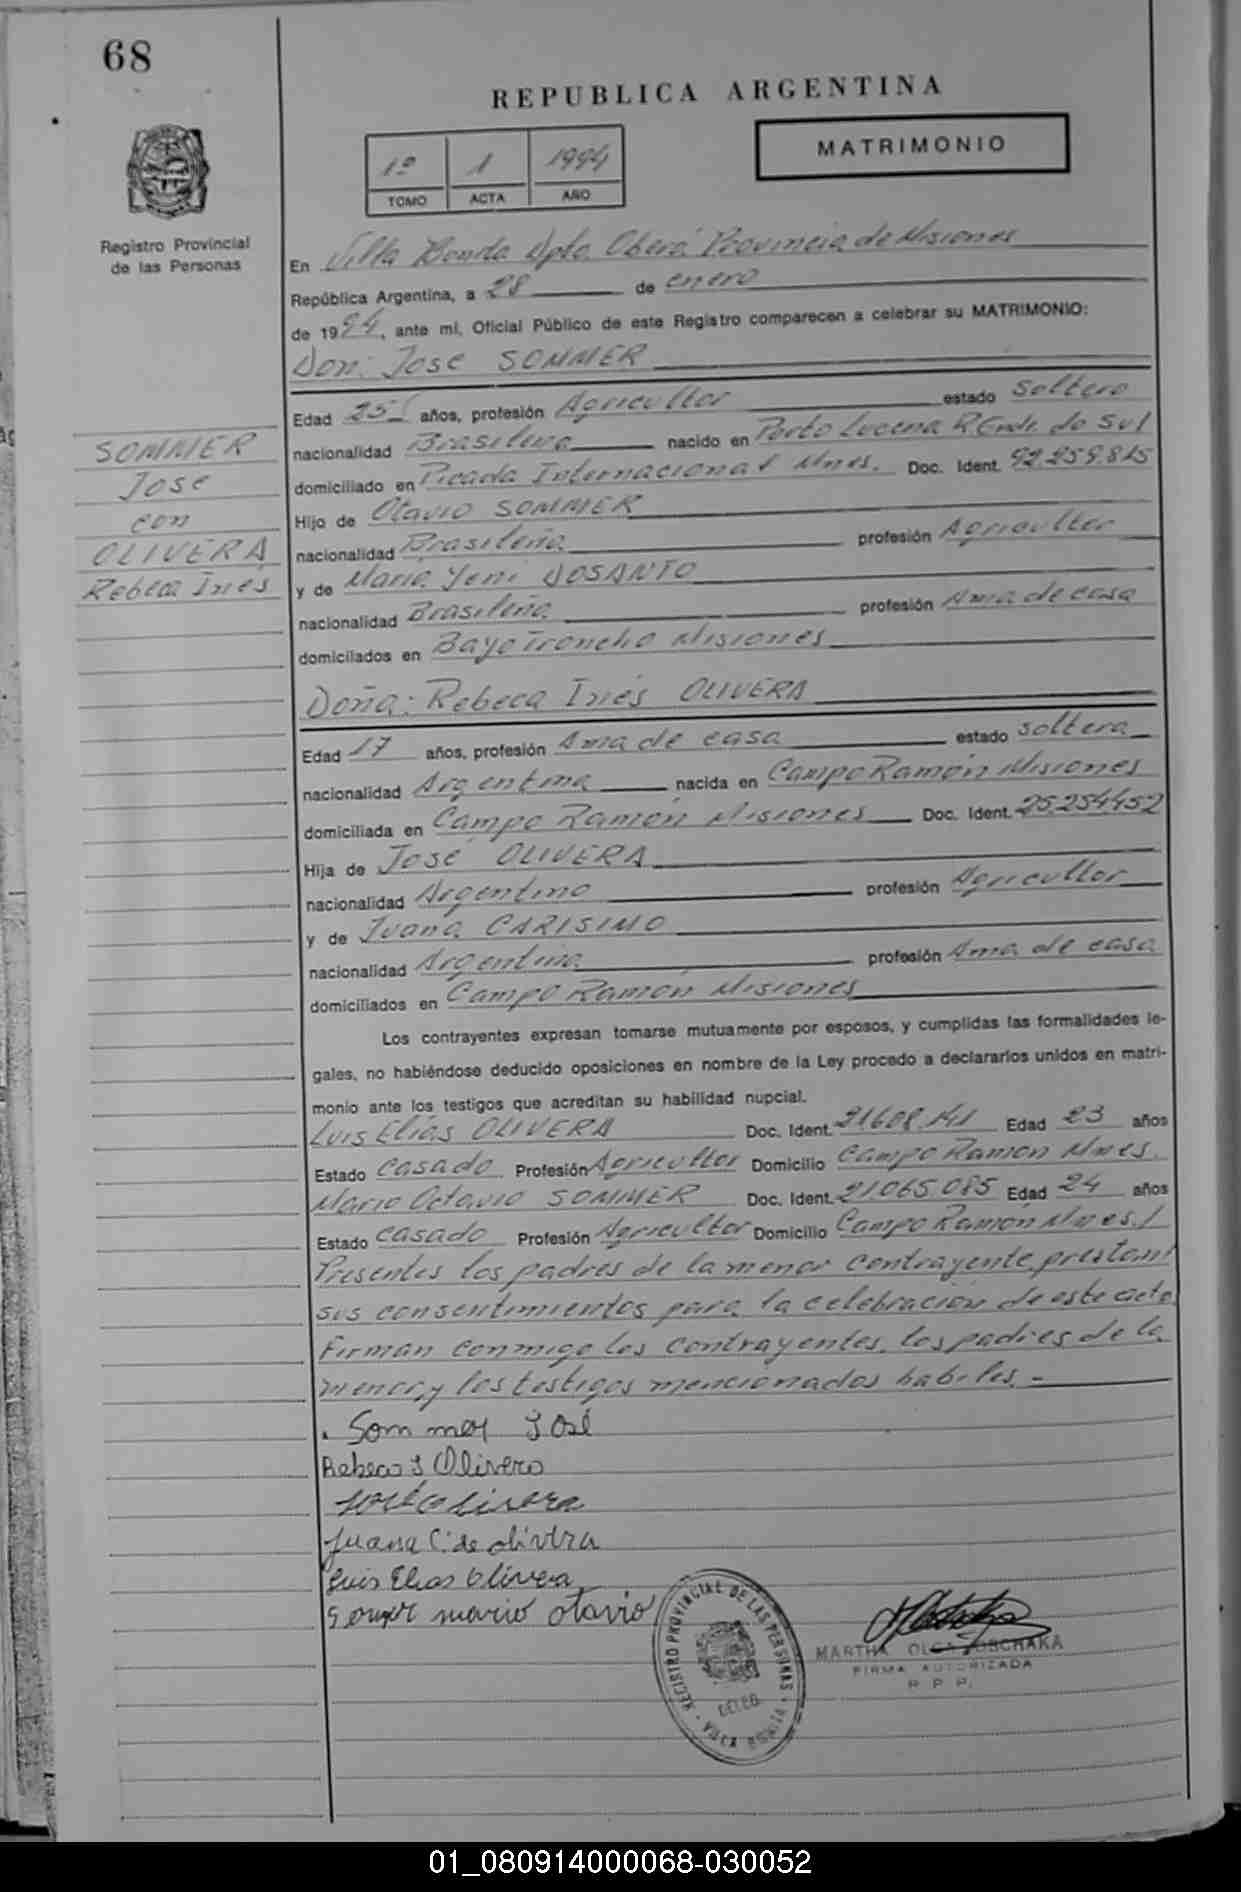 68
REPUBLICA ARGENTINA
1º 1 1994
TOMO ACTA AÑO
MATRIMONIO
Registro Provincial
de las Personas
En Villa Bonita Dpto. Oberá Provincia de Misiones
República Argentina, a 28 de enero
de 1994, ante mí, Oficial Público de este Registro comparecen a celebrar su MATRIMONIO:
Don: José SOMMER
Edad 25 años, profesión Agricultor estado Soltero
nacionalidad Brasilera nacido en Porto Lucena RGnde. do Sul
domiciliado en Picada Internacional Mnes. Doc. Ident. 92.259.815
Hijo de Otavio SOMMER
nacionalidad Brasileña profesión Agricultor
y de Maria Yeni DOSANTO
nacionalidad Brasileña profesión Ama de casa
domicilados en Bayo Troncho Misiones
Doña: Rebeca Inés OLIVERA
Edad 17 años, profesión Ama de casa estado soltera
nacionalidad Argentina nacida en Campo Ramón Misiones
domiciliada en Campo Ramón Misiones Doc. Ident. 25.254.452
Hija de José OLIVERA
nacionalidad Argentino profesión Agricultor
y de Juana CARISIMO
nacionalidad Argentina profesión Ama de casa
domiciliados en Campo Ramón Misiones
SOMMER
José
con
OLIVERA
Rebeca Inés
Los contrayentes expresan tomarse mutuamente por esposos, y cumplidas las formalidades le-
gales, no habiéndose deducido oposiciones en nombre de la Ley procedo a declararlos unidos en matri-
monio ante los testigos que acreditan su habilidad nupcial.
Luis Elías OLIVERA Doc. Ident. 21.608.141 Edad 23 años
Estado Casado Profesión Agricultor Domicilio Campo Ramón Mnes.
Mario Octavio SOMMER Doc. Ident. 21.065.085 Edad 24 años
Estado casado Profesión Agricultor Domicilio Campo Ramón Mnes.
Presentes los padres de la menor contrayente prestan
sus consentimientos para la celebración de este acto
Firman conmigo los contrayentes, los padres de la
menor y los testigos mencionados habiles.-
Sommer José
Rebeca I Olivera
José Olivera
Juana C. de olivera
Luis Elias Olivera
Somer mario otavio
REGISTRO PROVINCIAL DE LAS PERSONAS
DELEG.
VILLA BONITA
MARTHA OLGA
FIRMA AUTORIZADA
R. P. P.
01_080914000068-030052